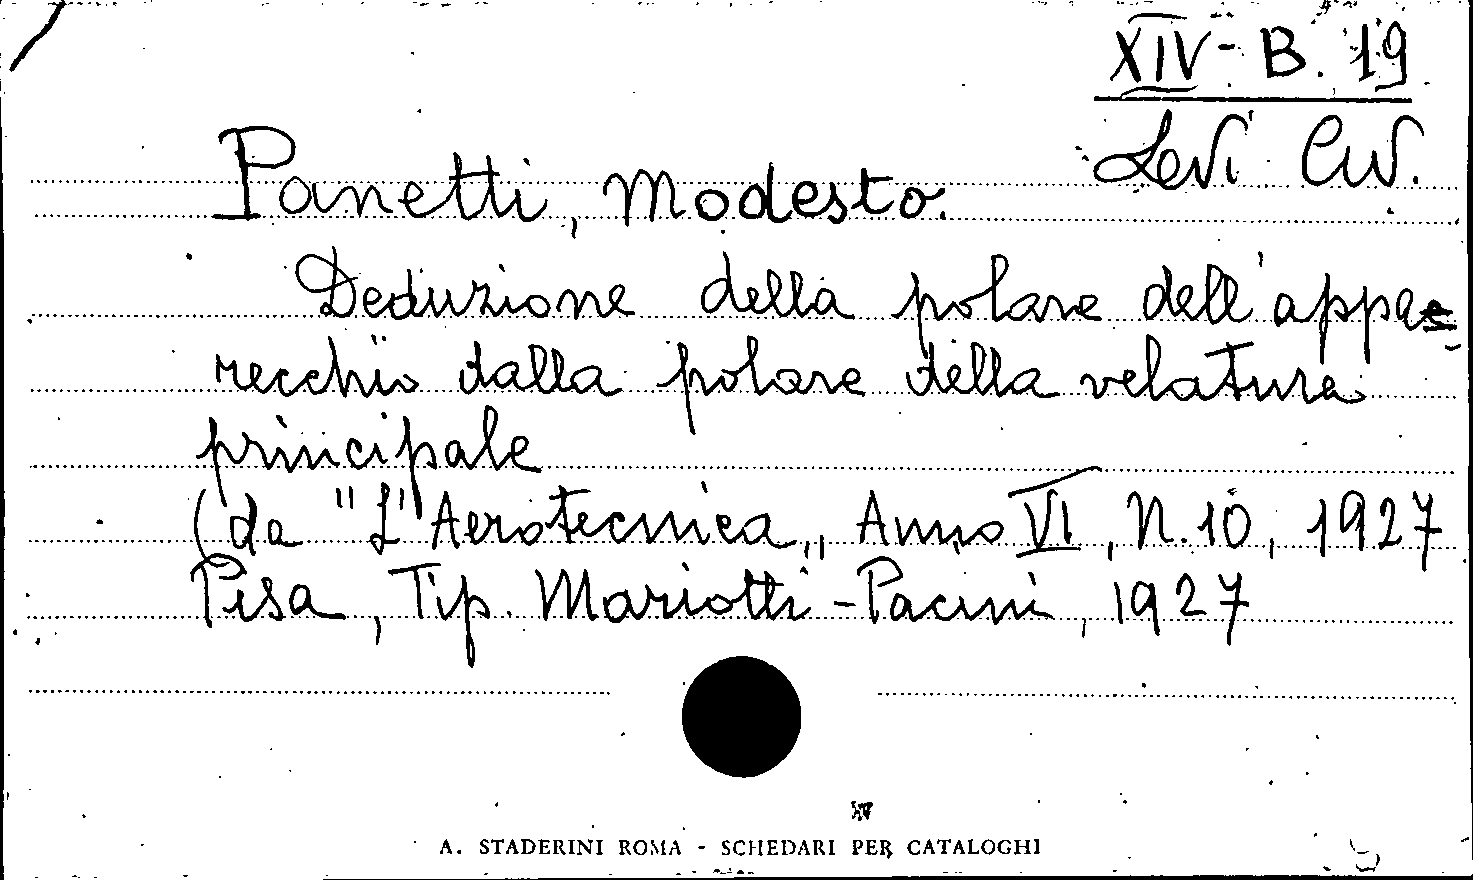 XIV - B. 19
Levi Civ.
Panetti, Modesto.
Deduzione della polare dell'appa=
recchio dalla polare della velatura
principale
(da "L'Aerotecnica„ Anno VI, N. 10, 1927
Pisa, Tip. Mariotti - Pacini, 1927
A. STADERINI ROMA - SCHEDARI PER CATALOGHI